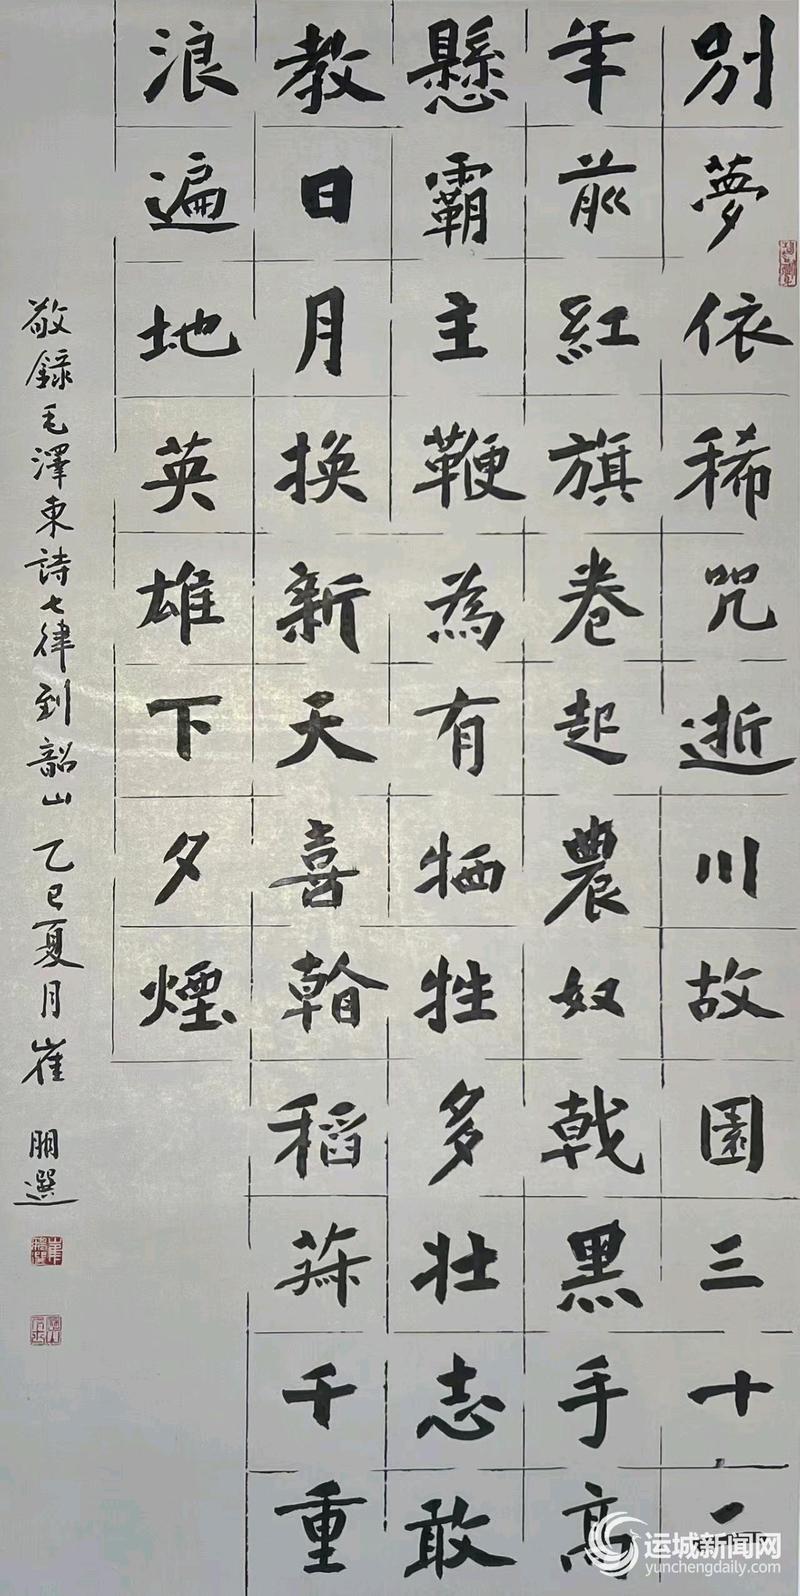 別夢依稀咒逝川故園三十二
年前紅旗卷起農奴戟黑手高
懸霸主鞭為有牺牲多壯志敢
教日月換新天喜看稻菽千重
浪遍地英雄下夕煙
敬錄毛澤東詩七律到韶山乙巳夏月崔朋選
运城新闻网
yunchengdaily.com